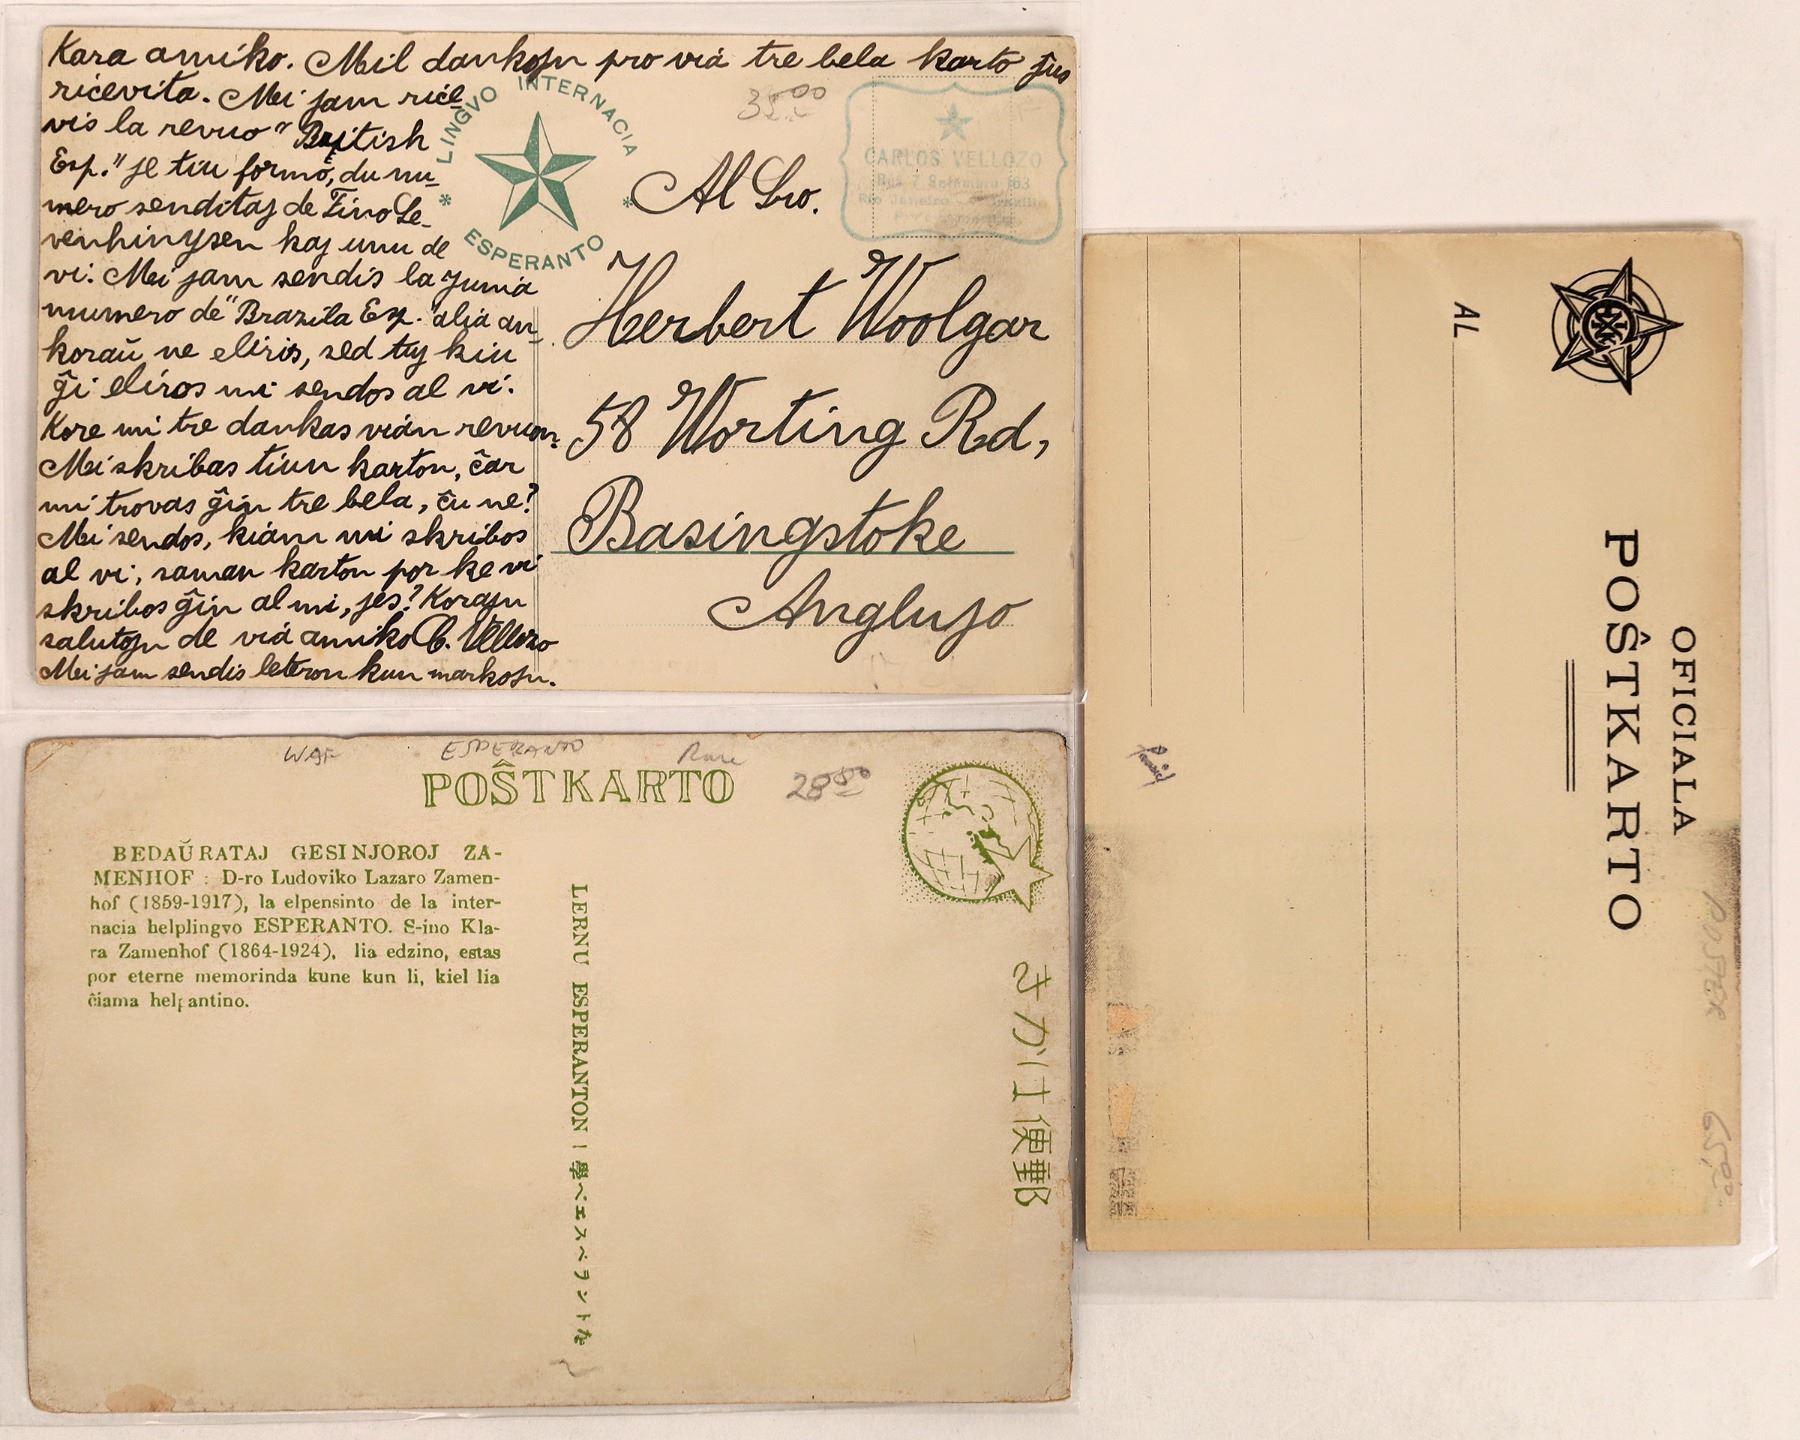 Kara amiko. Mil dankojn pro via tre bela karto ĵus
ricevita. Mi jam rice-
vis la revuo "British
Esp." je tiu formo, du nu-
mero senditaj de Fino Le-
kaj unu de
vi. Mi jam sendis la Junia
numero de "Brazila Esp." alia an-
koraŭ ne eliris, sed tuj kiu
ĝi eliros mi sendos al vi.
Kore mi tre dankas vian revuon.
Mi skribas tiun karton, ĉar
mi trovas ĝin tre bela, ĉu ne?
Mi sendos, kiam mi skribos
al vi, saman karton por ke vi
skribos ĝin al mi, jes? Korajn
salutojn de via amiko C. Vellozo
Mi jam sendis leteron kun markojn.
* LINGVO INTERNACIA *
ESPERANTO
35.00
CARLOS VELLOZO
Rua 7 Setembro 163
Rio Janeiro
Al Sro.
Herbert Woolgar
58 Worting Rd,
Basingstoke
Anglujo
WAF ESPERANTO Rare
POŜTKARTO
28.50
BEDAŬRATAJ GESINJOROJ ZA-
MENHOF : D-ro Ludoviko Lazaro Zamen-
hof (1859-1917), la elpensinto de la inter-
nacia helplingvo ESPERANTO. S-ino Kla-
ra Zamenhof (1864-1924), lia edzino, estas
por eterne memorinda kune kun li, kiel lia
ĉiama helpantino.
LERNU ESPERANTON ! 學べエスペラントを
きがは便郵
OFICIALA
POŜTKARTO
AL
POSTER
65.00